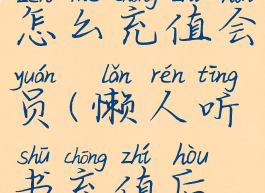 zěn me chōng zhí huì
怎么充值会
yuán lǎn rén tīng
员(懒人听
shū chōng zhí hòu
书充值后